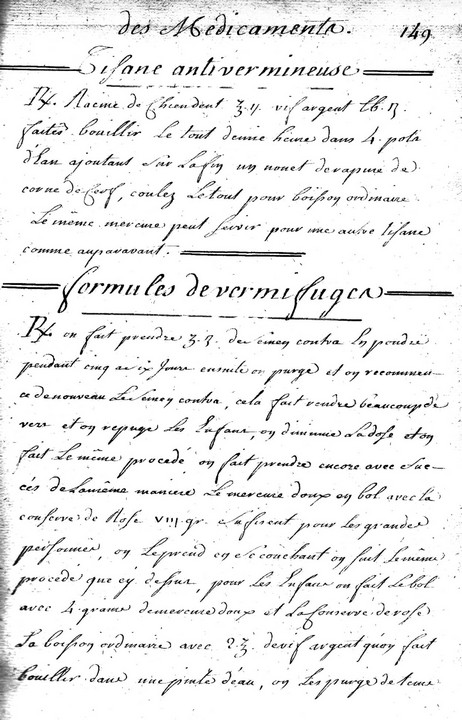 des Medicaments. 149
Tisane antivermineuse
℞. Racine de Chiendent ℥.ij. vif argent lb.ß.
faites bouillir le tout demie heure dans 4. pots
d'Eau ajoutant sur la fin un nouet de rapure de
corne de Cerf, coulez le tout pour boisson ordinaire
Le même mercure peut servir pour une autre tisane
comme auparavant.
formules de vermifuges
℞ on fait prendre de semen contra En poudre
pendant cinq a six Jours ensuite on purge et on recommen-
ce de nouveau Le semen contra, cela fait rendre beaucoup de
vers et on repurge Les Enfans, on diminue La dose et on
fait Le même procedé, on fait prendre encore avec suc-
cés de La même maniere Le mercure doux en bol avec la
conserve de Rose VIII.gr. sufisent pour Les grandes
personnes, on Le prend en se couchant on suit Le même
procedé que cy dessus, pour Les Enfans on fait Le bol
avec 4. grains de mercure doux et La conserve de rose
La boisson ordinaire avec 2 ℥. de vif argent qu'on fait
bouillir dans une pinte d'eau, on Les purge de tems